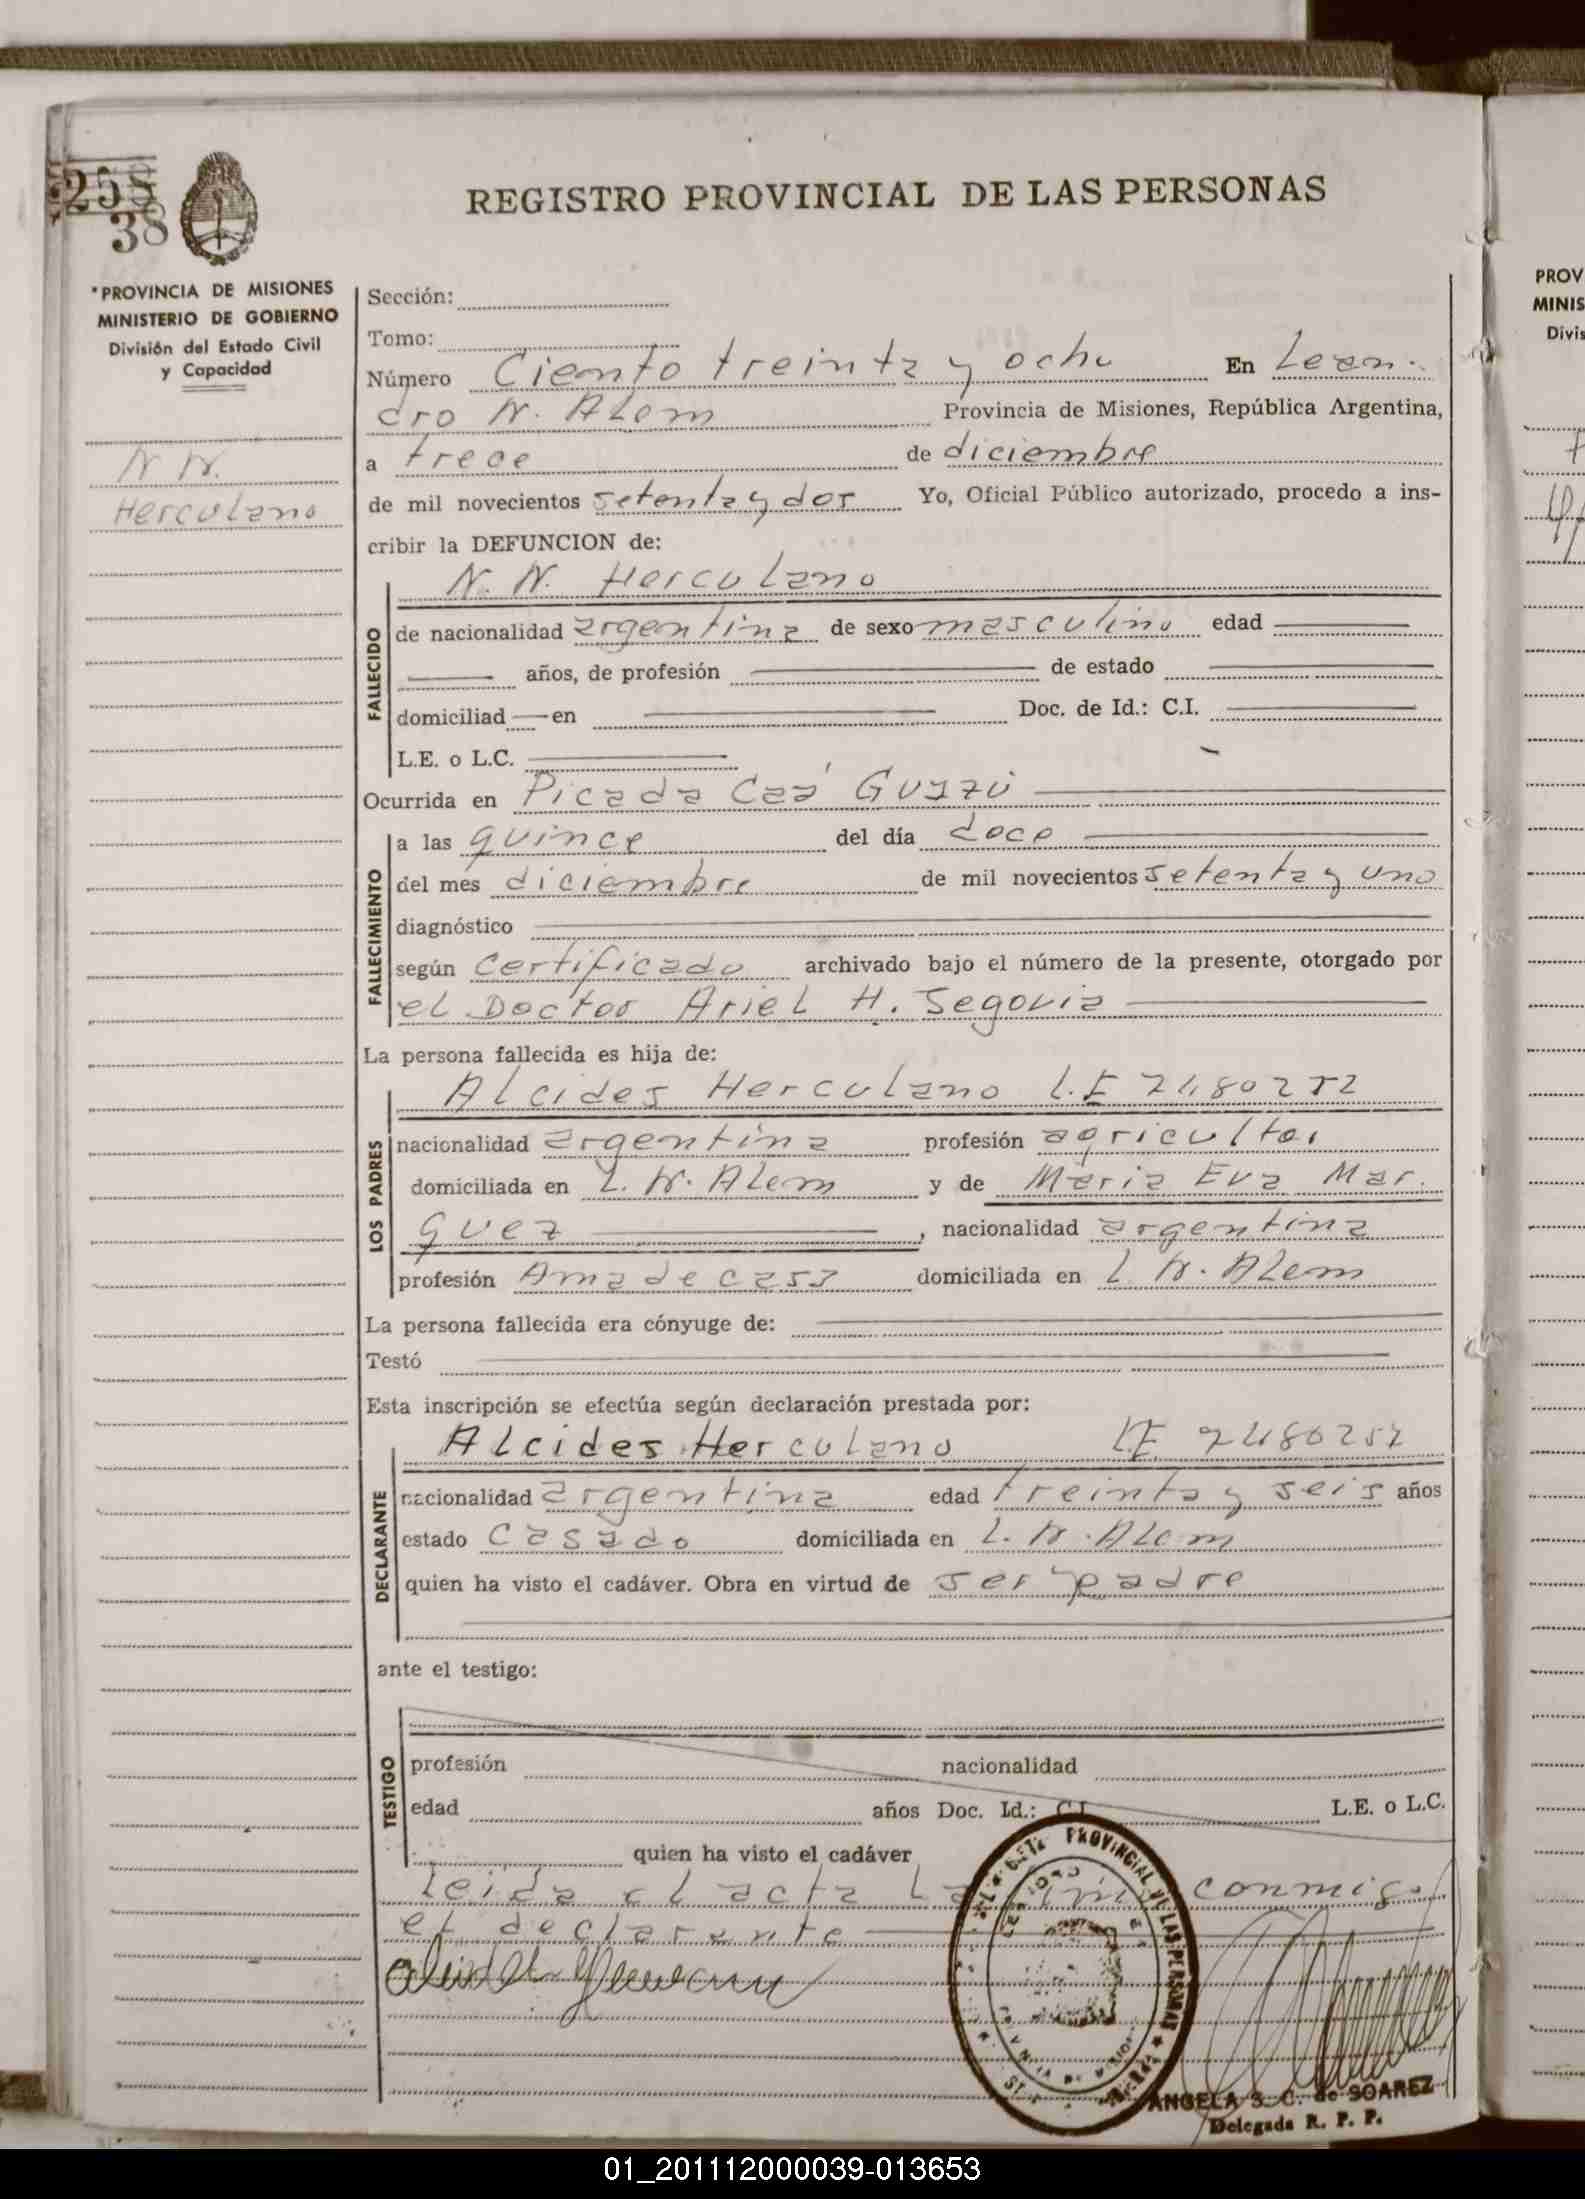 255
38
REGISTRO PROVINCIAL DE LAS PERSONAS
PROVINCIA DE MISIONES
MINISTERIO DE GOBIERNO
División del Estado Civil
y Capacidad
N N.
Herculano
Sección:
Tomo:
Número Ciento treinta y ocho En Lean-
dro N. Alem Provincia de Misiones, República Argentina,
a trece de diciembre
de mil novecientos setenta y dos Yo, Oficial Público autorizado, procedo a ins-
cribir la DEFUNCION de:
N. N. Herculano
FALLECIDO
de nacionalidad argentina de sexo masculino edad
años, de profesión de estado
domiciliad en Doc. de Id.: C.I.
L.E. o L.C.
Ocurrida en Picada Caá Guazú
FALLECIMIENTO
a las quince del día doce
del mes diciembre de mil novecientos setenta y uno
diagnóstico
según Certificado archivado bajo el número de la presente, otorgado por
el Doctor Ariel H. Segovia
La persona fallecida es hija de:
LOS PADRES
Alcides Herculano L.E 7480252
nacionalidad argentina profesión agricultor
domiciliada en L. N. Alem y de Maria Eva Mar-
quez , nacionalidad argentina
profesión Ama de casa domiciliada en L. N. Alem
La persona fallecida era cónyuge de:
Testó
Esta inscripción se efectúa según declaración prestada por:
DECLARANTE
Alcides Herculano LE 7480252
nacionalidad argentina edad treinta y seis años
estado casado domiciliada en L. N. Alem
quien ha visto el cadáver. Obra en virtud de ser padre
ante el testigo:
TESTIGO
profesión nacionalidad
edad años Doc. Id.: C.I. L.E. o L.C.
quien ha visto el cadáver
leida el acta la conmigo
el declarante
PROVINCIAL DE LAS PERSONAS
ANGELA S. C. de SOAREZ
Delegada R. P. P.
PROV
MINIS
Divis
01_201112000039-013653